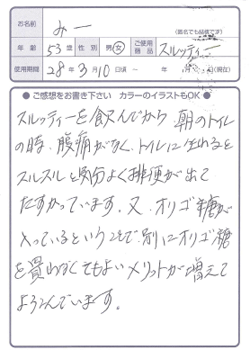 お名前
みー
（匿名でも結構です）
年齢 53歳 性別 男・女 ご使用商品 スルッティー
使用期間 28年3月10日頃 ～ （現在）
●ご感想をお書き下さい カラーのイラストもOK●
スルッティーを飲んでから、朝のトイレ
の時、腹痛がなく、トイレに坐ると
スルスルと気分よく排便が出て
たすかっています。又、オリゴ糖が
入っているということで、別にオリゴ糖
を買わなくてもよいメリットが増えて
よろこんでいます。